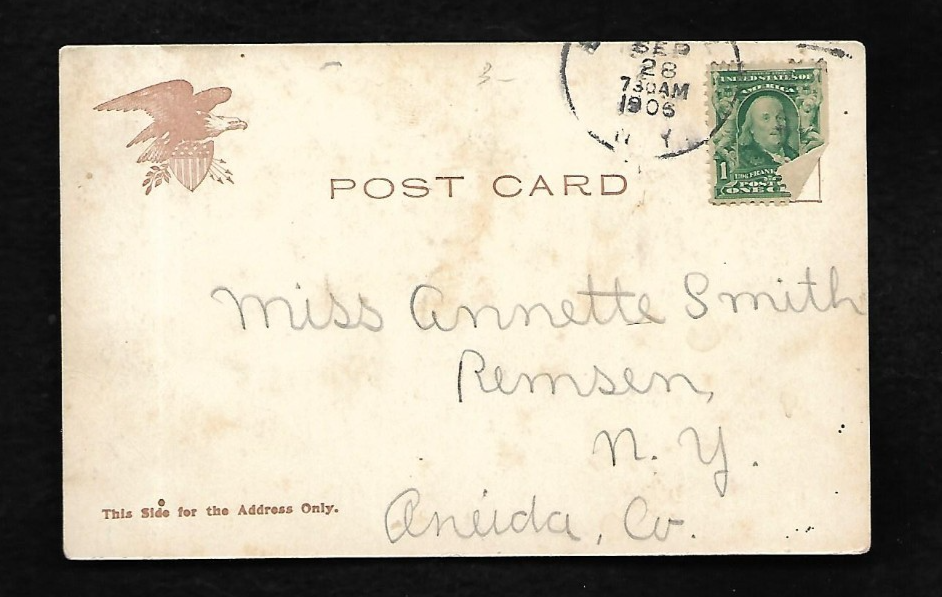 3-
SEP
28
730AM
1906
N.Y.
UNITED STATES OF
AMERICA
1
POST
ONE C
POST CARD
Miss Annette Smith
Remsen,
N. Y.
Oneida, Co.
This Side for the Address Only.